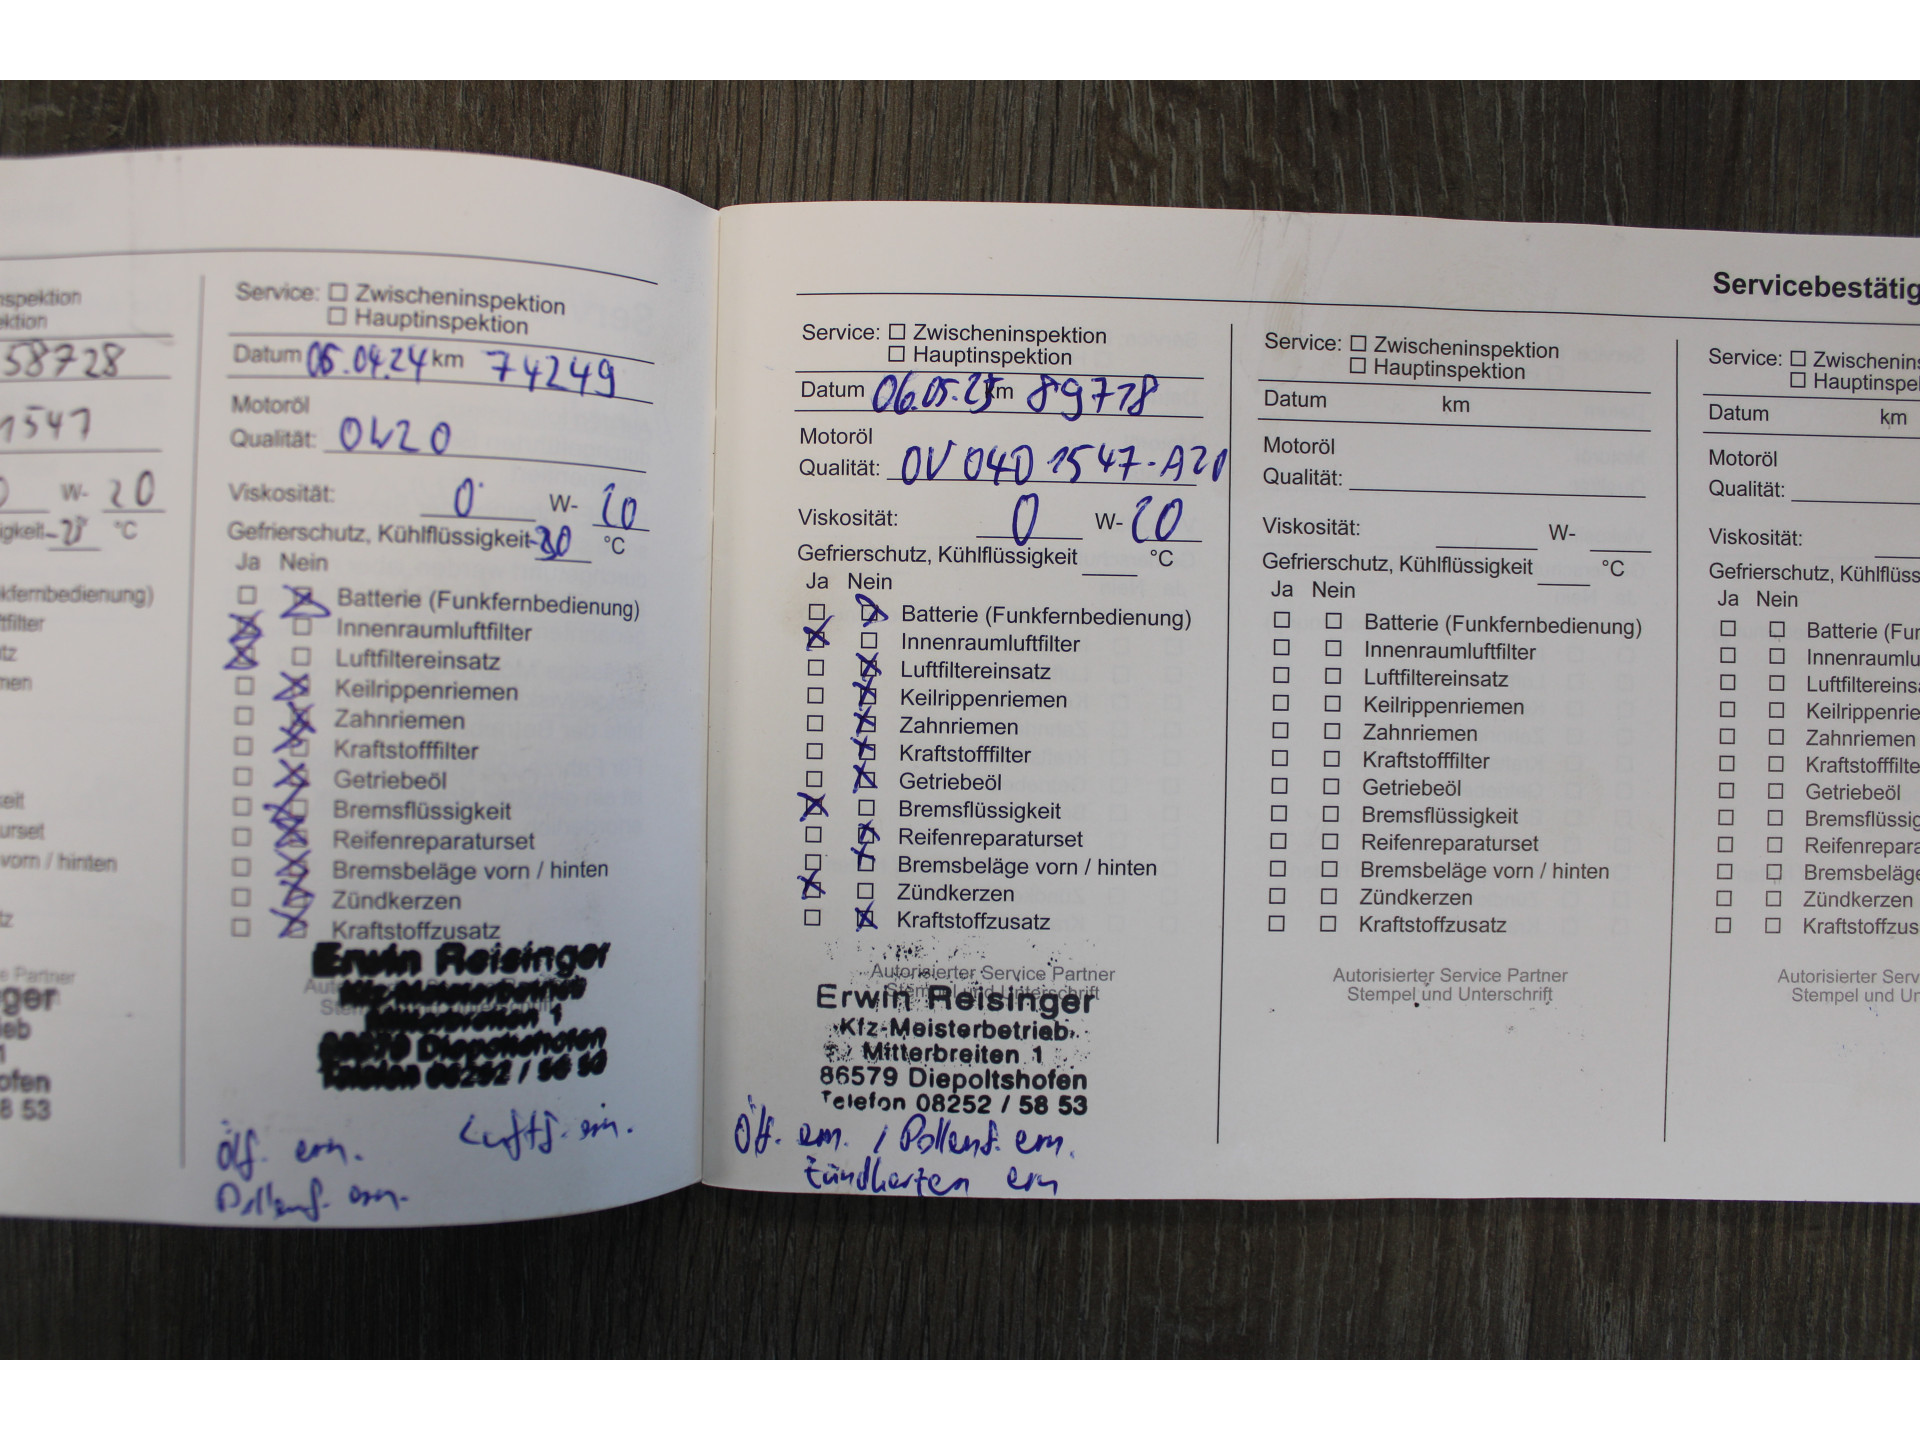 nspektion
ektion
58728
1547
W- 20
igkeit -25 °C
kfernbedienung)
tfilter
tz
men
keit
urset
vorn / hinten
tz
e Partner
ger
eb
1
ofen
8 53
Service: ☐ Zwischeninspektion
☐ Hauptinspektion
Datum 05.04.24 km 74249
Motoröl
Qualität: 0W20
Viskosität: 0 W- 20
Gefrierschutz, Kühlflüssigkeit -30 °C
Ja Nein
Batterie (Funkfernbedienung)
Innenraumluftfilter
Luftfiltereinsatz
Keilrippenriemen
Zahnriemen
Kraftstofffilter
Getriebeöl
Bremsflüssigkeit
Reifenreparaturset
Bremsbeläge vorn / hinten
Zündkerzen
Kraftstoffzusatz
Erwin Reisinger
Kfz-Meisterbetrieb
Mitterbreiten 1
86579 Diepoltshofen
Telefon 08252 / 58 53
Ölf. ern. Luftf. ern.
Pollenf. ern.
Servicebestätig
Service: ☐ Zwischeninspektion
☐ Hauptinspektion
Datum 06.05.25 km 89718
Motoröl
Qualität: 0V 040 1547-A20
Viskosität: 0 W- 20
Gefrierschutz, Kühlflüssigkeit °C
Ja Nein
Batterie (Funkfernbedienung)
Innenraumluftfilter
Luftfiltereinsatz
Keilrippenriemen
Zahnriemen
Kraftstofffilter
Getriebeöl
Bremsflüssigkeit
Reifenreparaturset
Bremsbeläge vorn / hinten
Zündkerzen
Kraftstoffzusatz
Autorisierter Service Partner
Stempel und Unterschrift
Erwin Reisinger
Kfz-Meisterbetrieb
Mitterbreiten 1
86579 Diepoltshofen
Telefon 08252 / 58 53
Ölf. ern. / Pollenf. ern.
Zündkerzen ern
Service: ☐ Zwischeninspektion
☐ Hauptinspektion
Datum km
Motoröl
Qualität:
Viskosität: W-
Gefrierschutz, Kühlflüssigkeit °C
Ja Nein
Batterie (Funkfernbedienung)
Innenraumluftfilter
Luftfiltereinsatz
Keilrippenriemen
Zahnriemen
Kraftstofffilter
Getriebeöl
Bremsflüssigkeit
Reifenreparaturset
Bremsbeläge vorn / hinten
Zündkerzen
Kraftstoffzusatz
Autorisierter Service Partner
Stempel und Unterschrift
Service: ☐ Zwischenins
☐ Hauptinspe
Datum km
Motoröl
Qualität:
Viskosität:
Gefrierschutz, Kühlflüss
Ja Nein
Batterie (Fu
Innenraumlu
Luftfiltereinsa
Keilrippenrie
Zahnriemen
Kraftstofffilte
Getriebeöl
Bremsflüssig
Reifenrepara
Bremsbeläge
Zündkerzen
Kraftstoffzus
Autorisierter Serv
Stempel und Un